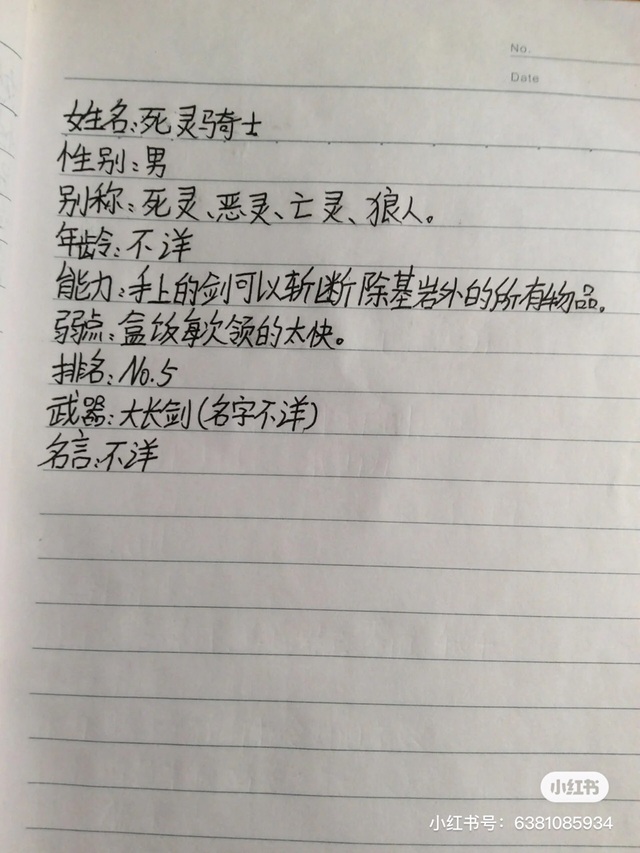 No.
Date
姓名:死灵骑士
性别:男
别称:死灵、恶灵、亡灵、狼人。
年龄:不洋
能力:手上的剑可以斩断除基岩外的所有物品。
弱点:盒饭每次领的太快。
排名:No.5
武器:大长剑(名字不洋)
名言:不洋
小红书
小红书号:6381085934